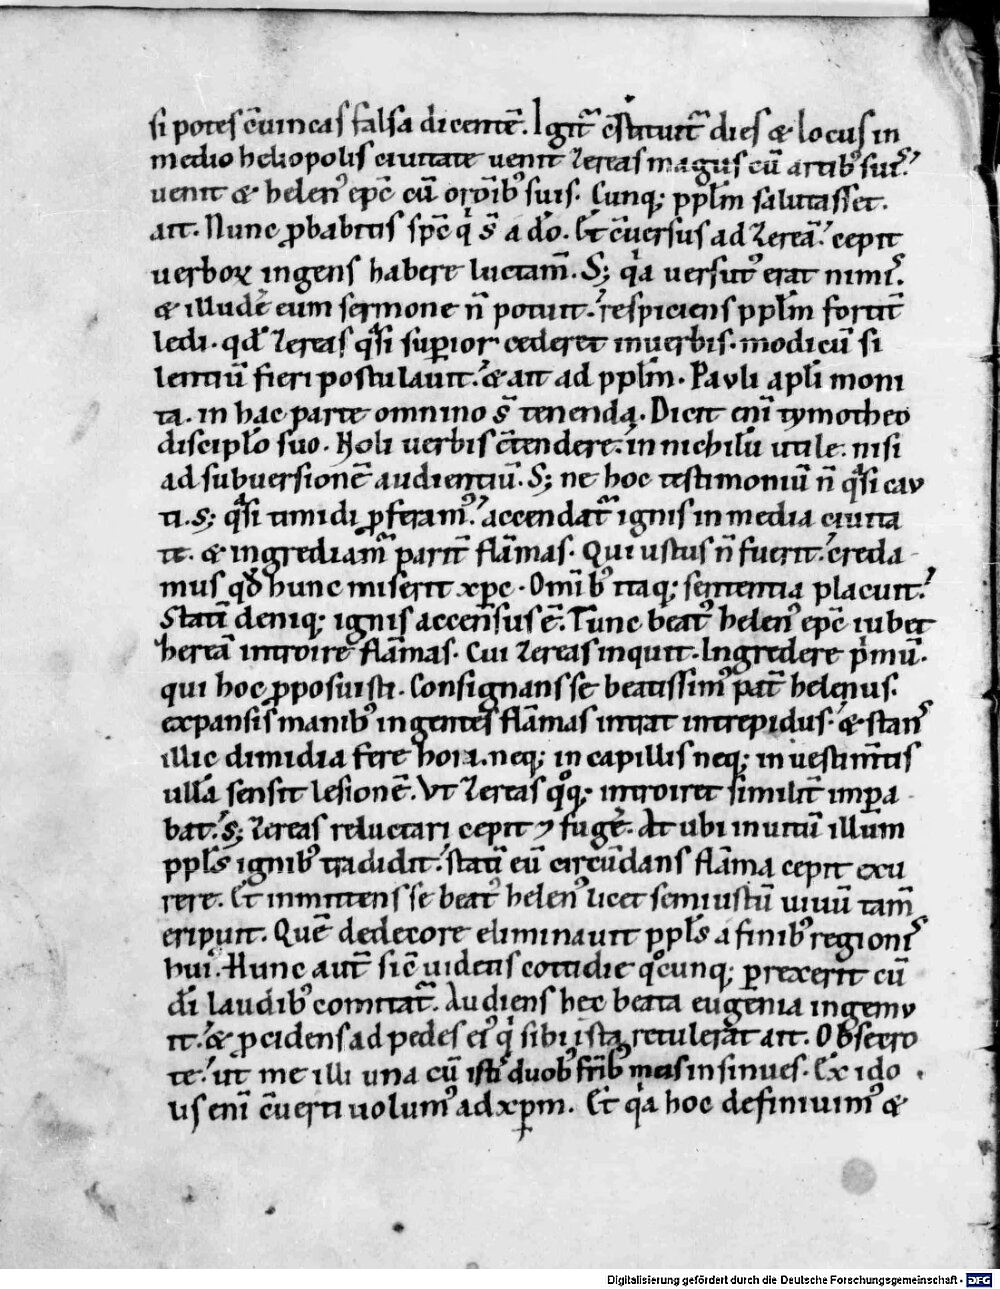 si potes c̄uincas falsa dicentē. Igit᷑ c̄stituit᷑ dies & locus in
medio heliopolis ciuitate uenit Zereas magus cū artib; suis.
uenit & helen᷒ epc̄ cū or̄oib; suis. Cunq; pplm̄ salutasset.
ait. Nunc ꝓbabitis sp̄c q̇ s̄ a dō. Et c̄uersus ad Zereā. cepit
uerboꝝ ingens habere luctam̄. S; q̇a uersut᷒ erat nimis.
& illudere eum sermone n̄ potuit. respiciens pplm̄ fortit̄
ledi. qd̄ Zereas q̇si superior cederet in uerbis. modicū si
lentiū fieri postulauit. & ait ad pplm̄. Pauli apl̄i moni
ta. in hac parte omnino s̄ tenenda. Dicit eni᷒ tymotheo
discipl̄o suo. Noli uerbis c̄tendere. in nichilū utile. nisi
ad subuersionē audientiū. S; ne hoc testimoniū n̄ q̇si cau
ti. s; q̇si timidi ꝓferam᷒. accendat᷑ ignis in media ciuita
te. & ingrediam᷑ parit̄ flāmas. Qui ustus n̄ fuerit. creda
mus qd̄ hunc miserit xp̄c. Omīb; itaq; sententia placuit.
Statī deniq; ignis accensus ē. Tunc beat᷒ helen᷒ epc̄ iubet
hereā introire flāmas. Cui Zereas inquit. Ingredere p̄mū.
qui hoc ꝓposuisti. Consignans se beatissim᷒ pat̄ helenus.
expansis manib; in gentes flāmas intrat intrepidus. & stans
illic dimidia fere hora. neq; in capillis neq; in uestimt̄is
ullā sensit lesionē. Ut Zereas q°q; introiret similit̄ impera
bat. s; Zereas reluctari cepit ⁊ fugē. At ubi inuitū illum
ppls̄ ignib; tradidit. statī eū circūdans flāma cepit exu
rere. Et inmittens se beat᷒ helen᷒ licet semiustū uiuū tam̄
eripuit. Quē dedecore eliminauit ppls̄ a finib; regionis
hui᷒. Hunc aut̄ sic̄ uidens cottidie q°cunq; ꝑrexerit cū
dī laudib; comitat᷑. Audiens hec beata eugenia ingemu
it. & ꝓcidens ad pedes ei᷒ q̇ sibi ista retulerat ait. Obsecro
te. ut me illi una cū istis duob; frīb; meis insinues. Ex ido
lis eni᷒ c̄uerti uolum᷒ ad xp̄m. Et q̇a hoc definiuim᷒ &
Digitalisierung gefördert durch die Deutsche Forschungsgemeinschaft - DFG